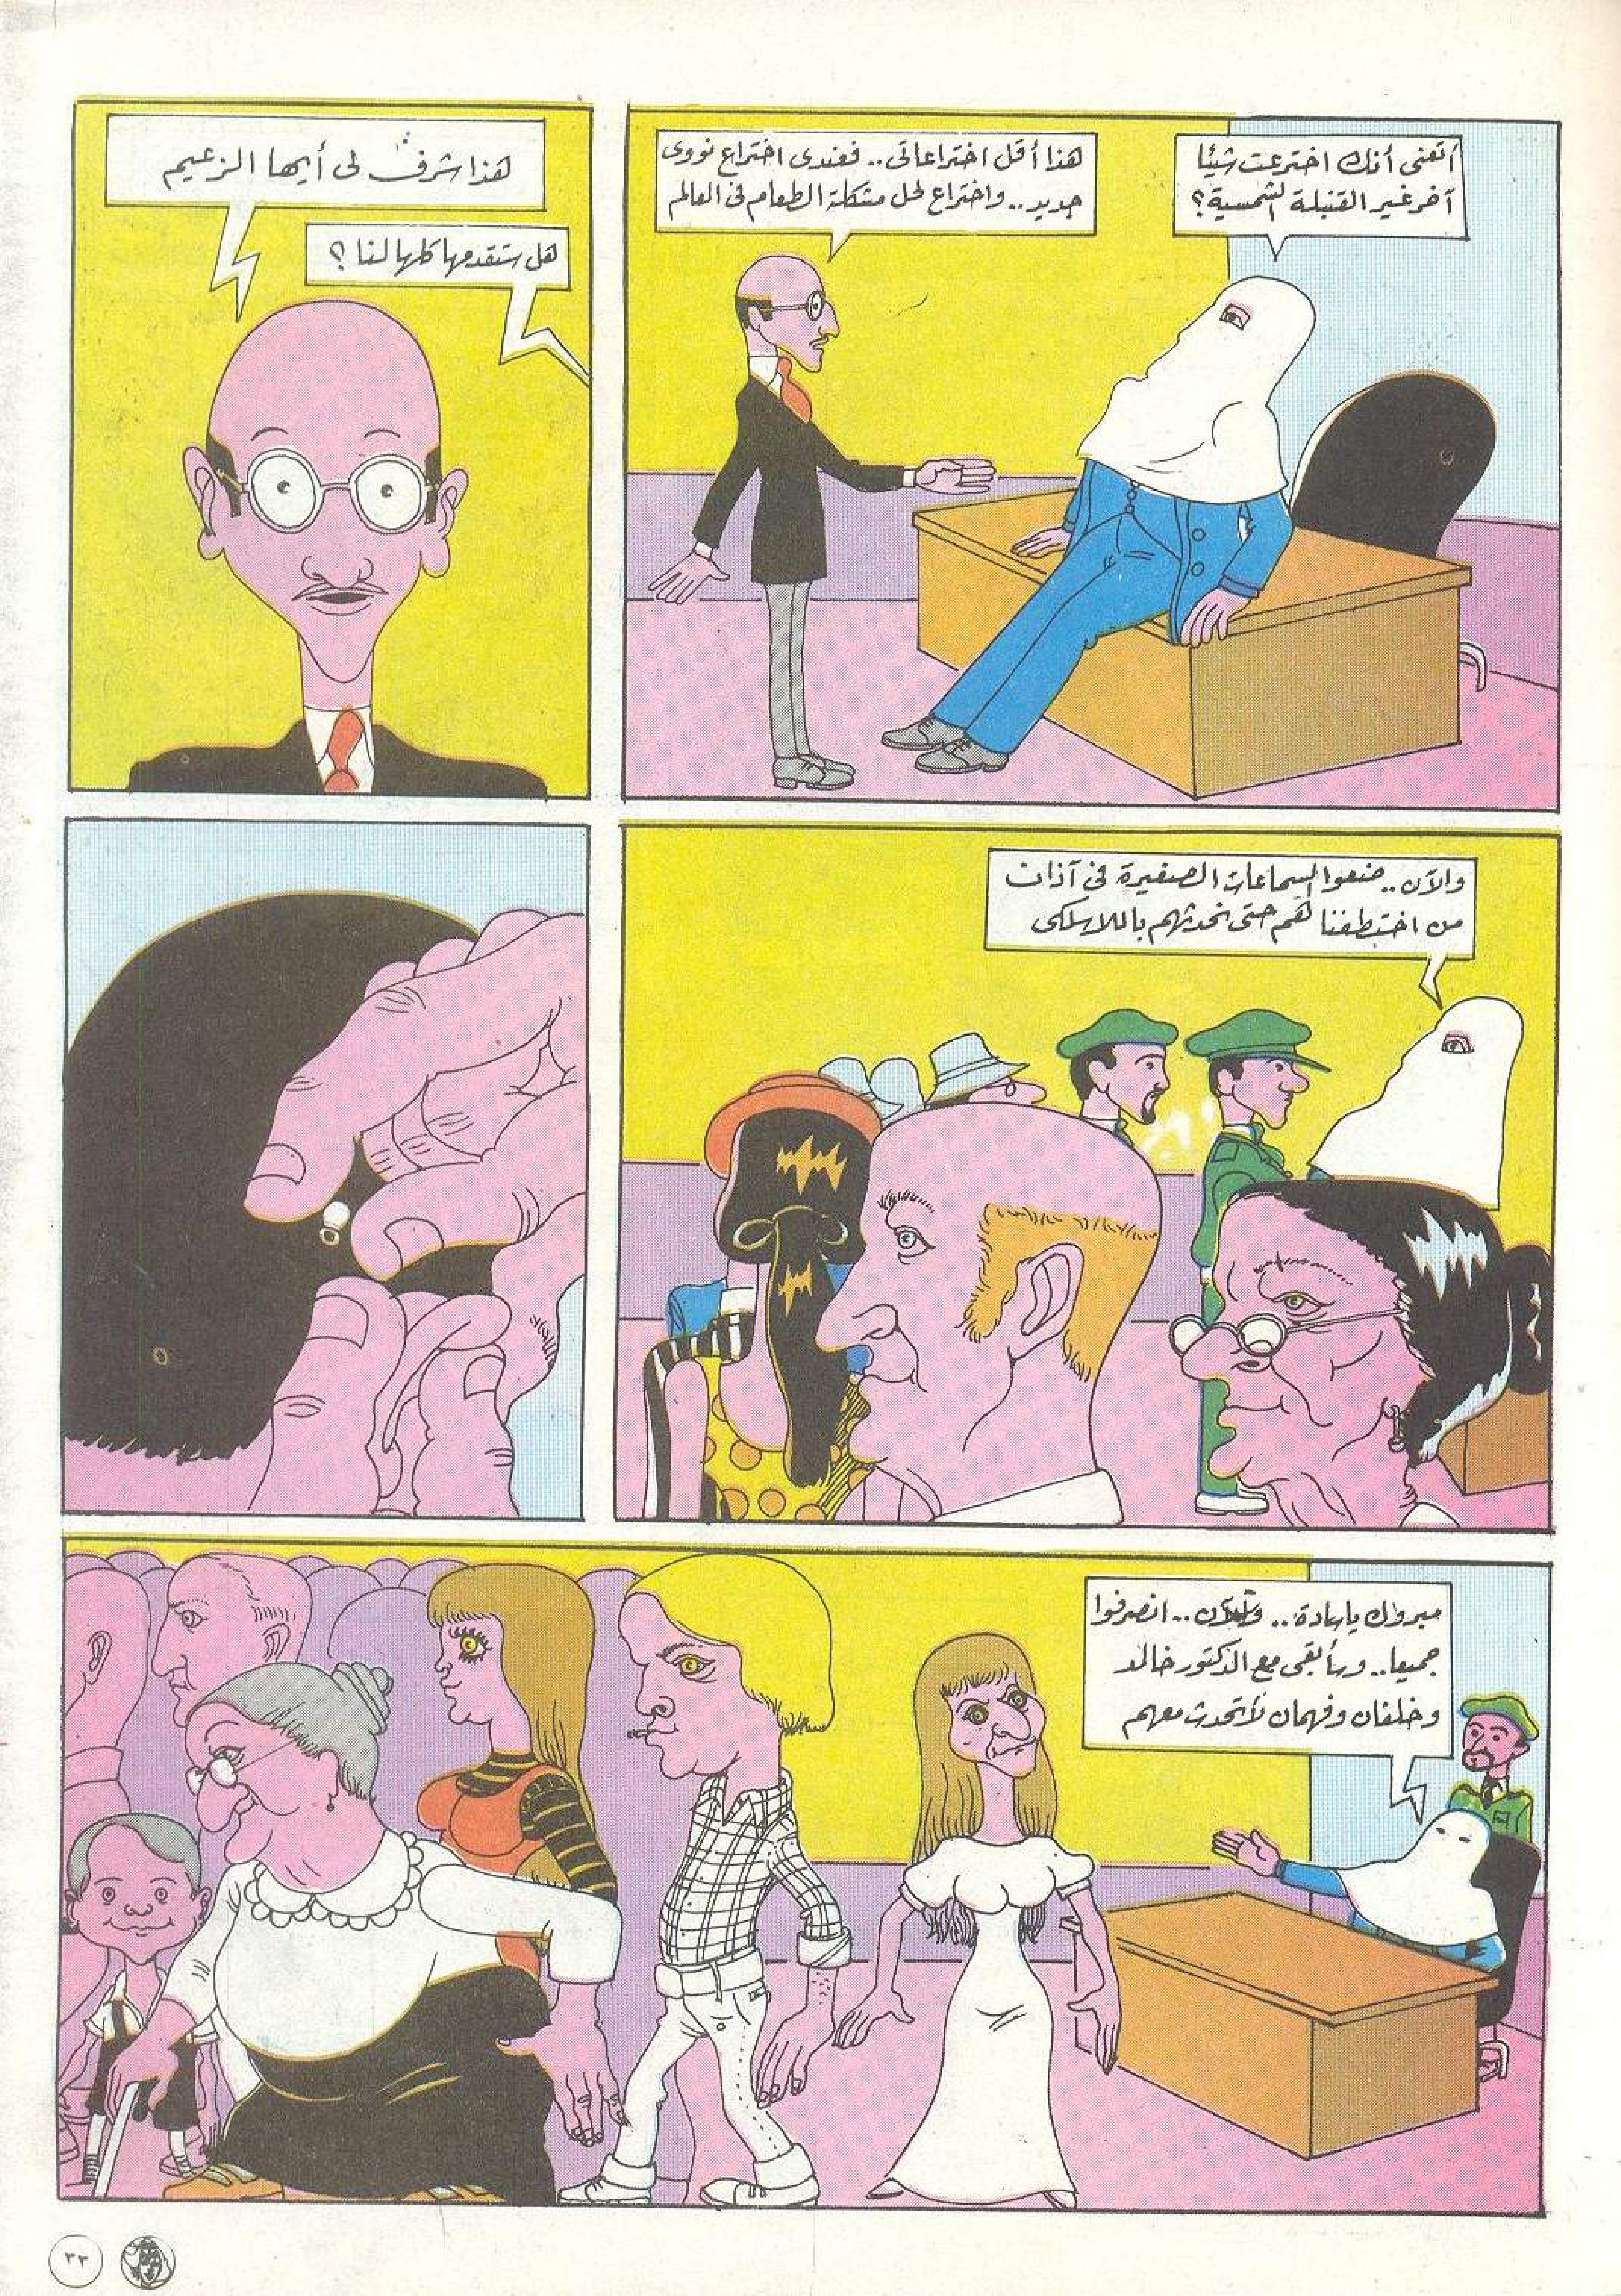 أتعنى أنك اخترعت شيئا
آخر غير القنبلة الشمسية؟
هذا أقل اختراعاتى.. فعندى اختراع نووى
جديد.. واختراع لحل مشكلة الطعام فى العالم
هل ستقدمها كلها لنا؟
هذا شرف لى أيها الزعيم
والآن.. ضعوا السماعات الصغيرة فى آذان
من اختطفنا لهم حتى نحدثهم باللاسلكى
مبروك ياسادة.. والآن.. انصرفوا
جميعا.. وسأبقى مع الدكتور خالد
وخلفان وفهمان لأتحدث معهم
٣٣